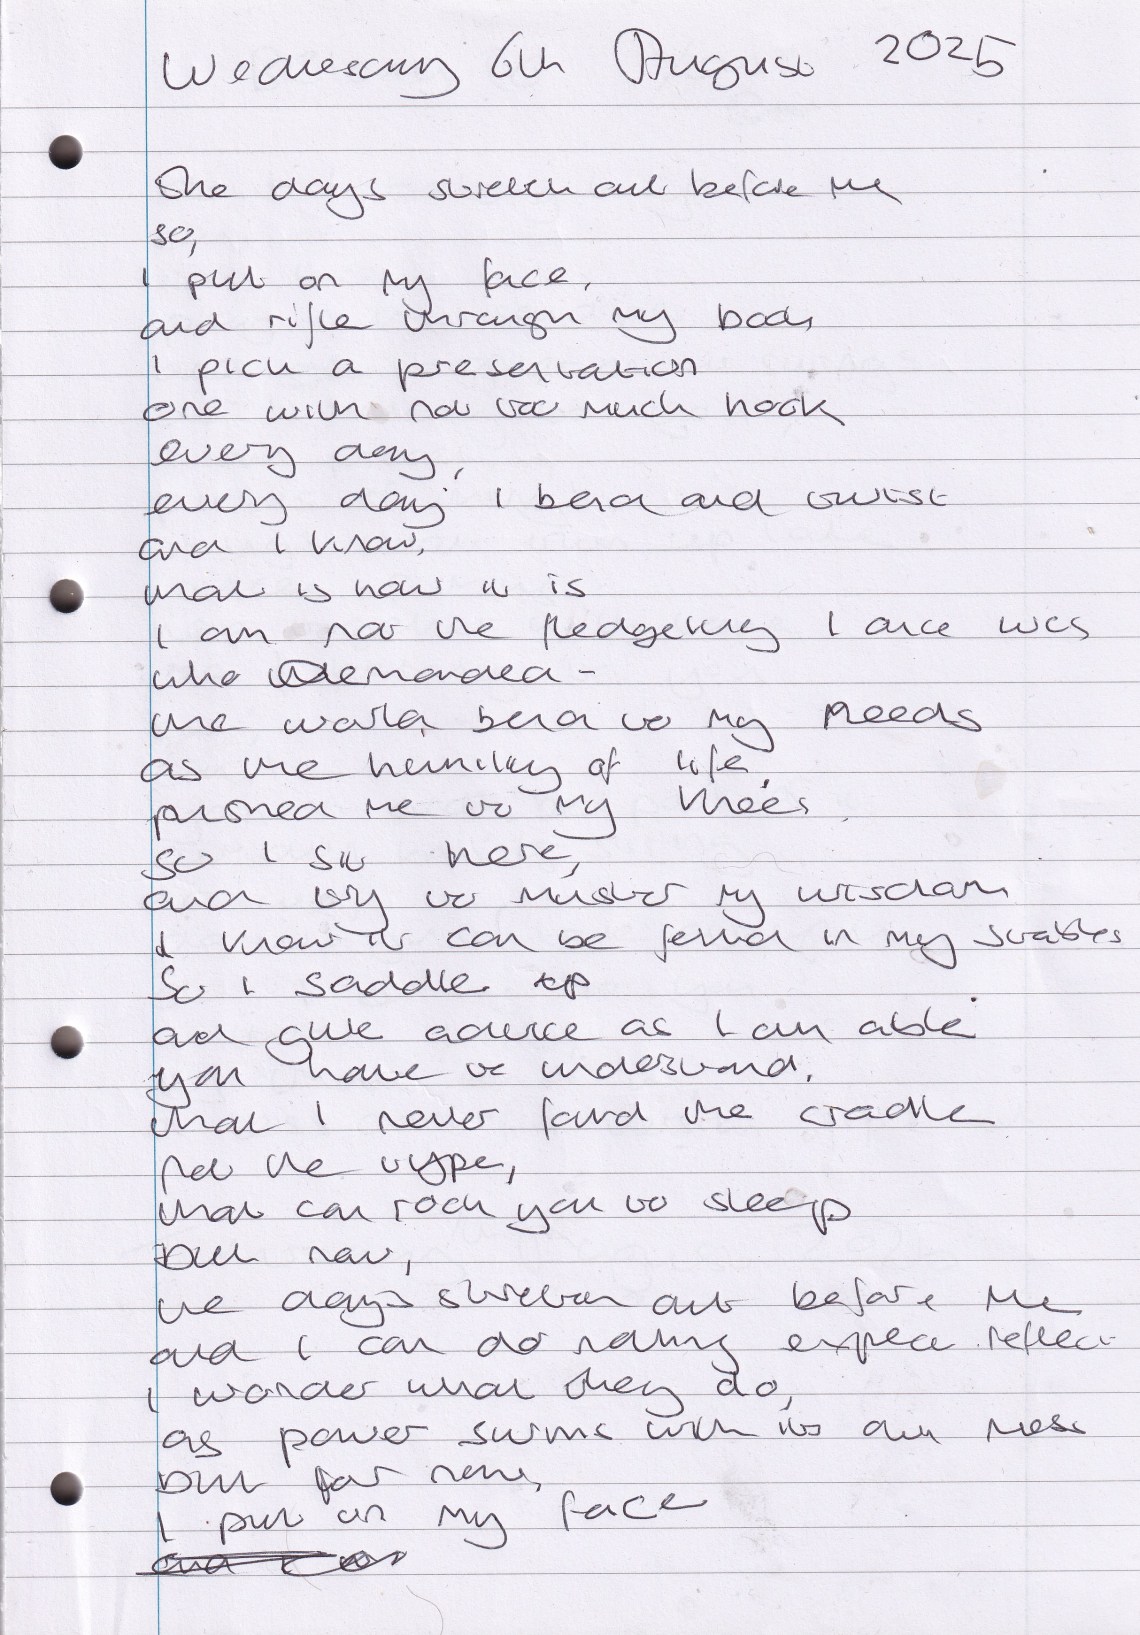 Wednesday 6th August 2025
The days stretch out before me
so,
I put on my face,
and rifle through my body
I pick a presentation
one with not too much hook
every day,
every day I bend and twist
and I know,
that is how it is
I am not the fledgeling I once was
who demanded -
the world, bend to my needs
as the humility of life,
pushed me to my knees.
so I sit here,
and try to muster my wisdom
I know it can be found in my stables
So I saddle up
and give advice as I am able
you have to understand,
that I never found the cradle
not the type,
that can rock you to sleep
but now,
the days stretch out before me
and I can do nothing expect reflect
I wonder what they do,
as power swims with its own mess
but for now,
I put on my face